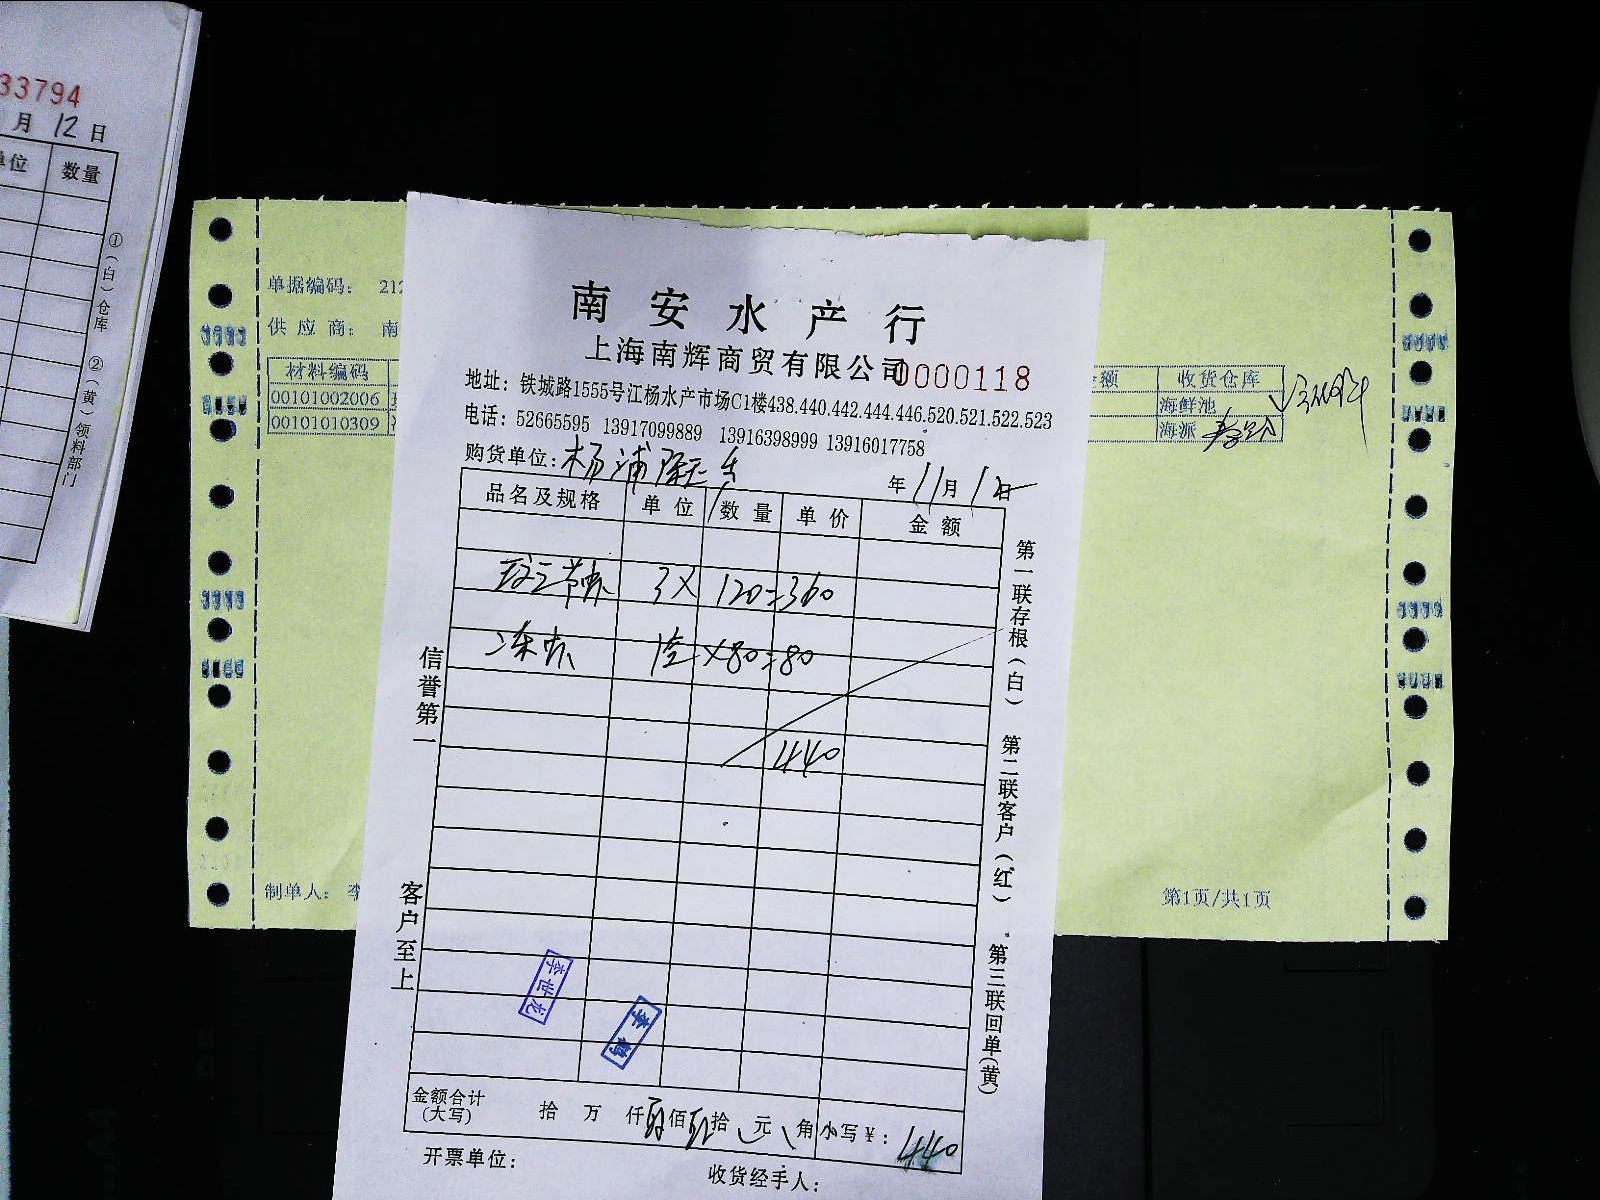 33794
月 12 日
单位 数量
①(白)仓库 ②(黄)领料部门
单据编码： 212
供 应 商： 南
材料编码
00101002006
00101010309
额 收货仓库
海鲜池
海派
制单人： 李
第1页/共1页
南安水产行
上海南辉商贸有限公司
0000118
地址：铁城路1555号江杨水产市场C1楼438.440.442.444.446.520.521.522.523
电话：52665595 13917099889 13916398999 13916017758
购货单位：杨浦
年 11 月 12 日
品名及规格 单位 数量 单价 金额
3 X 120=360
冻 X 80=80
440
信誉第一
客户至上
第一联存根(白) 第二联客户(红) 第三联回单(黄)
李世龙
李鹤
金额合计
(大写)
拾 万 仟 肆 佰 肆 拾 元 角 小写￥：440
开票单位：
收货经手人：